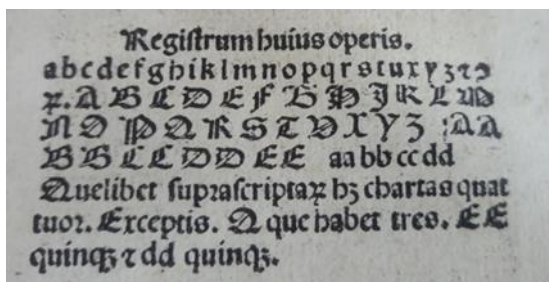 Regiſtrum huius operis.
abcdefghiklmnopqrstuxyzꝛꝯ
ꝝ. A B C D E F G H I K L M
N O P Q R S T V X Y Z : AA
BB CC DD EE aa bb cc dd
Quelibet ſupraſcriptaꝝ hꝫ chartas quat
tuoꝛ. Exceptis. Q que habet tres. EE
quinqꝫ ⁊ dd quinqꝫ.